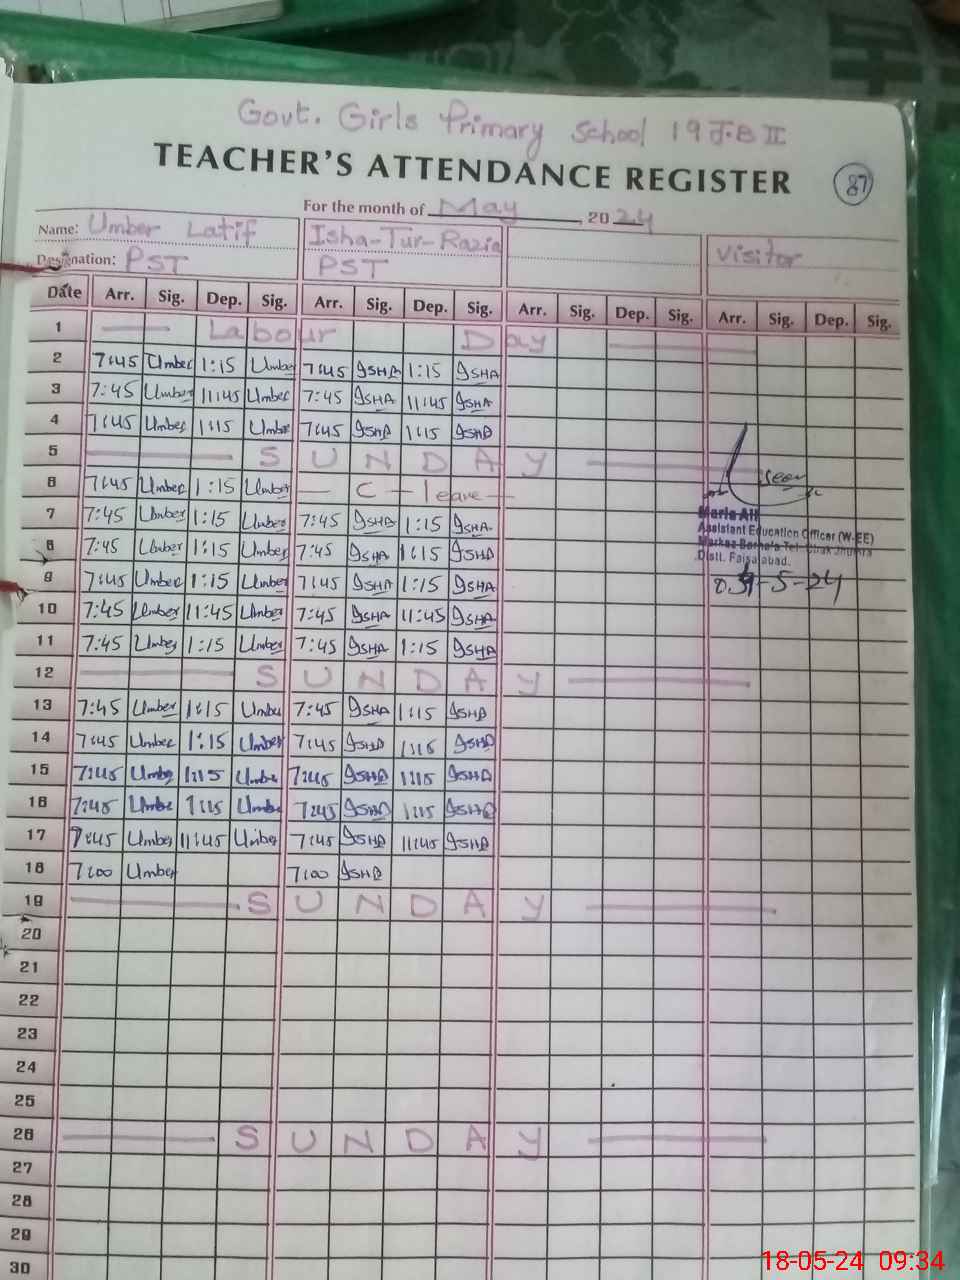 Govt. Girls Primary School 19 J.B II
TEACHER'S ATTENDANCE REGISTER 87
For the month of May, 2024
Name: Umber Latif Isha-Tur-Razia Visitor
Designation: PST PST
Date Arr. Sig. Dep. Sig. Arr. Sig. Dep. Sig. Arr. Sig. Dep. Sig. Arr. Sig. Dep. Sig.
1 Labour Day
2 7:45 Umber 1:15 Umber 7:45 ISHA 1:15 ISHA
3 7:45 Umber 11:45 Umber 7:45 ISHA 11:45 ISHA
4 7:45 Umber 1:15 Umber 7:45 ISHA 1:15 ISHA
5 SUNDAY
6 7:45 Umber 1:15 Umber C - leave
7 7:45 Umber 1:15 Umber 7:45 ISHA 1:15 ISHA
8 7:45 Umber 1:15 Umber 7:45 ISHA 1:15 ISHA
9 7:45 Umber 1:15 Umber 7:45 ISHA 1:15 ISHA
10 7:45 Umber 11:45 Umber 7:45 ISHA 11:45 ISHA
11 7:45 Umber 1:15 Umber 7:45 ISHA 1:15 ISHA
12 SUNDAY
13 7:45 Umber 1:15 Umber 7:45 ISHA 1:15 ISHA
14 7:45 Umber 1:15 Umber 7:45 ISHA 1:15 ISHA
15 7:45 Umber 1:15 Umber 7:45 ISHA 1:15 ISHA
16 7:45 Umber 1:15 Umber 7:45 ISHA 1:15 ISHA
17 7:45 Umber 11:45 Umber 7:45 ISHA 11:45 ISHA
18 7:00 Umber 7:00 ISHA
19 SUNDAY
20
21
22
23
24
25
26 SUNDAY
27
28
29
30
Seen
Maria Ali
Assistant Education Officer (W-EE)
Markaz Tel. Chak Jhumra
Distt. Faisalabad.
-5-24
18-05-24 09:34